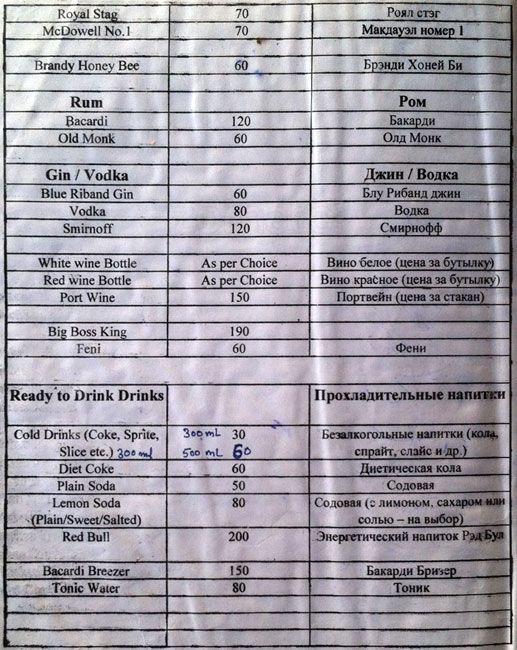 Royal Stag 70 Роял стэг
McDowell No.1 70 Макдауэл номер 1
Brandy Honey Bee 60 Брэнди Хоней Би
Rum Ром
Bacardi 120 Бакарди
Old Monk 60 Олд Монк
Gin / Vodka Джин / Водка
Blue Riband Gin 60 Блу Рибанд джин
Vodka 80 Водка
Smirnoff 120 Смирнофф
White wine Bottle As per Choice Вино белое (цена за бутылку)
Red wine Bottle As per Choice Вино красное (цена за бутылку)
Port Wine 150 Портвейн (цена за стакан)
Big Boss King 190
Feni 60 Фени
Ready to Drink Drinks Прохладительные напитки
Cold Drinks (Coke, Sprite, 300mL 30 Безалкогольные напитки (кола,
Slice etc.) 300ml 500 mL 60 спрайт, слайс и др.)
Diet Coke 60 Диетическая кола
Plain Soda 50 Содовая
Lemon Soda 80 Содовая (с лимоном, сахаром или
(Plain/Sweet/Salted) солью – на выбор)
Red Bull 200 Энергетический напиток Рэд Бул
Bacardi Breezer 150 Бакарди Бризер
Tonic Water 80 Тоник